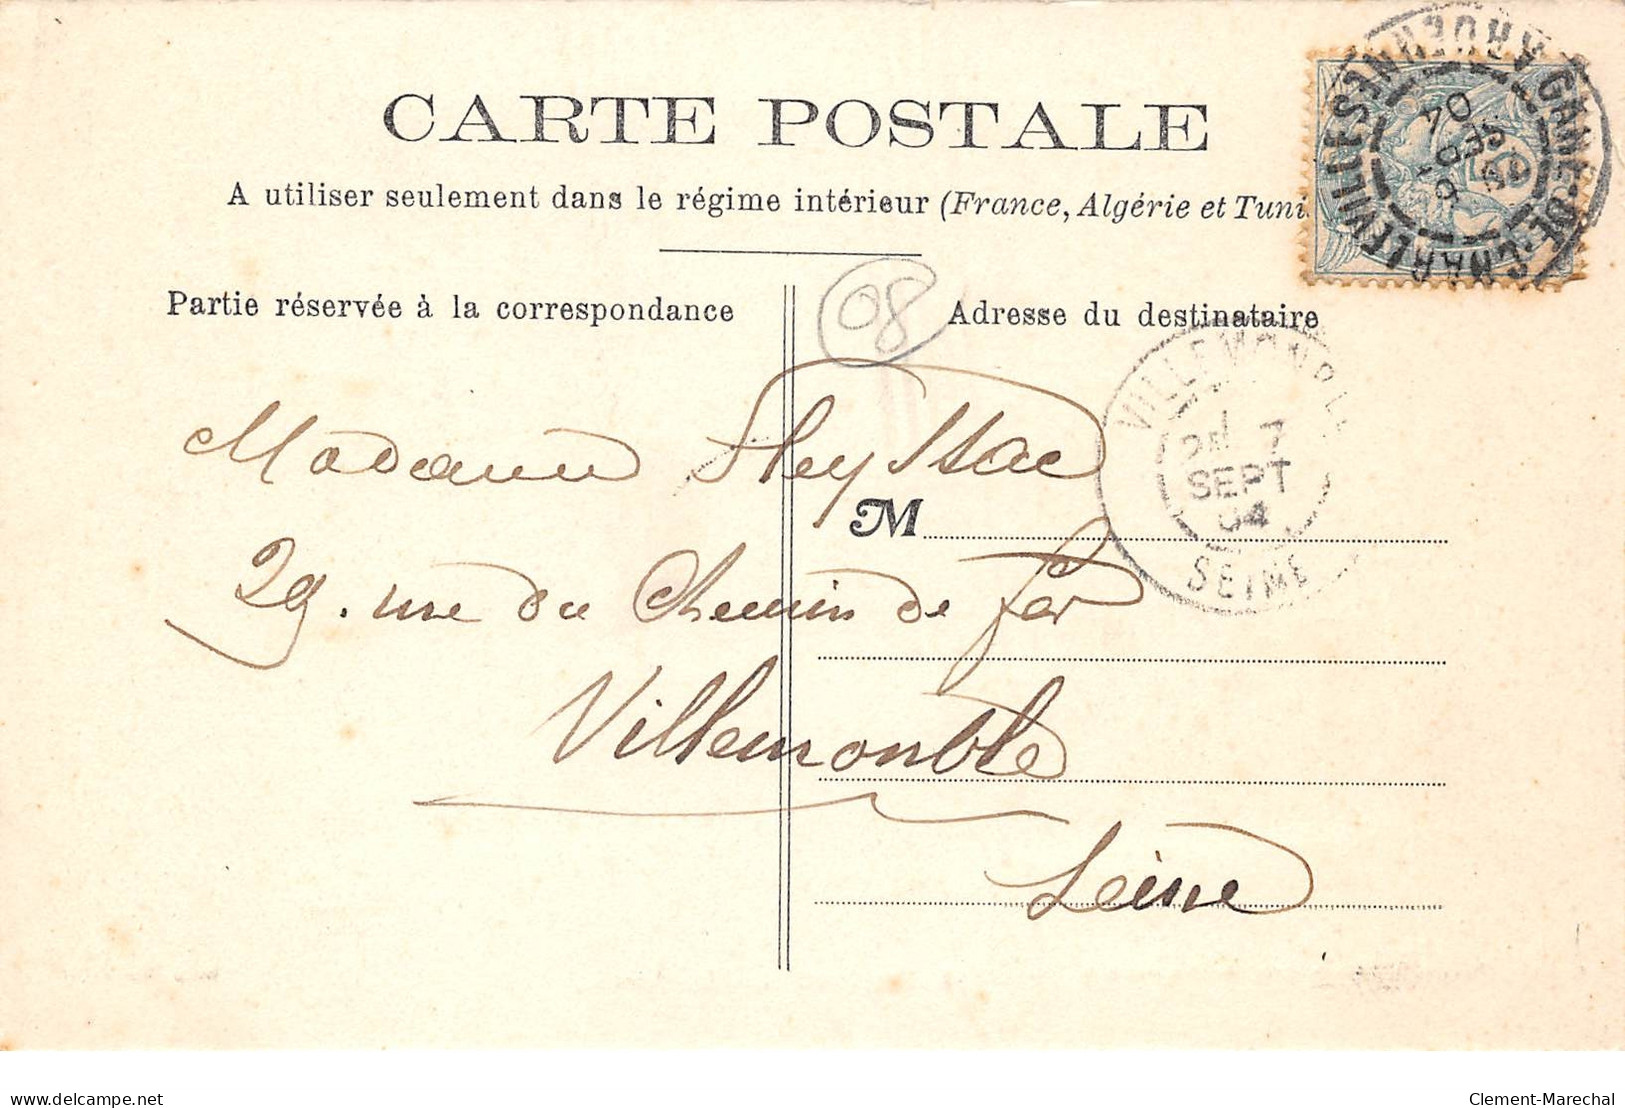 CARTE POSTALE
A utiliser seulement dans le régime intérieur (France, Algérie et Tuni
GARE-DE-CHARLEVILLE ARDENNES
SEPT
04
Partie réservée à la correspondance
08
Adresse du destinataire
VILLEMOMBLE
7
SEPT
04
SEINE
Madame
M
29. rue du Chemin de fer
Villemonble
Seine
delcampe.net
Clement-Marechal